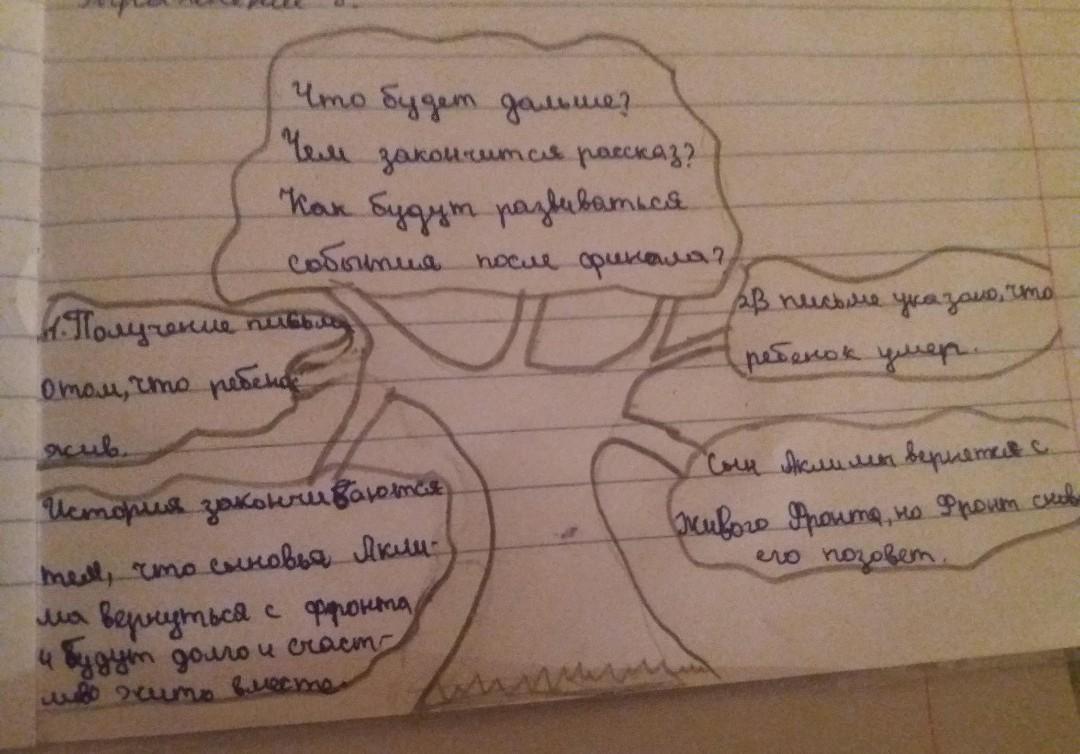 Что будет дальше?
Чем закончится рассказ?
Как будут развиваться
события после финала?
1. Получение письма
о том, что ребенок
жив.
2 В письме указано, что
ребенок умер.
История закончиваются
тем, что сыновья Якли-
ма вернуться с ффронта
и будут долго и счаст-
ливо жить вместе
Сын Яклимы вернятся с
живого Фронта, но Фронт снова
его позовет.